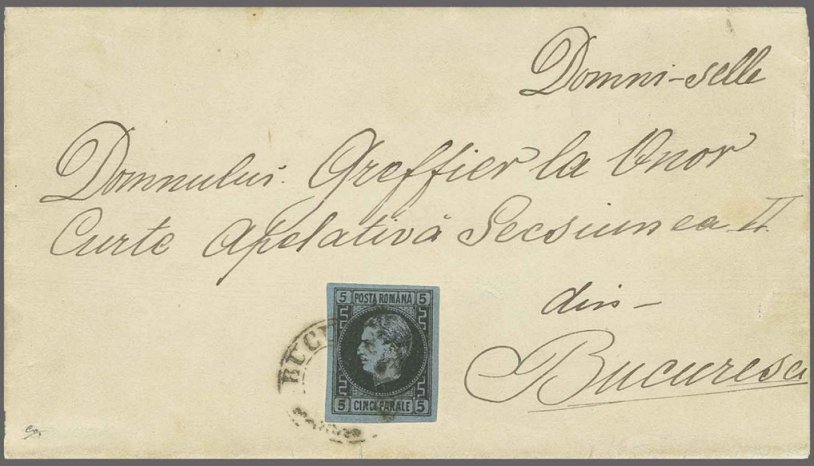 Domni-selle
Domnului Greffier la Onor
Curte Apelativă Secsiunea II
din-
Bucuresci
5 POSTA ROMÂNĂ 5
BUCU
5 CINCI PARALE 5